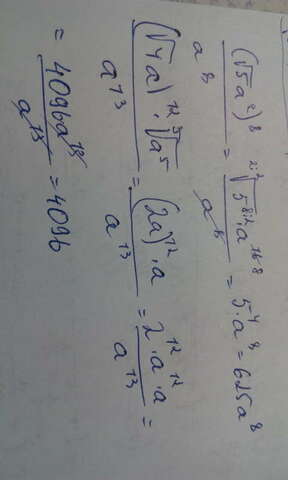 (√5a²)⁸ / a⁸ = ²:²√(5⁸:² · a¹⁶ ⁸) / a⁸ = 5⁴ · a⁸ = 625a⁸
(√4a)¹² · ⁵√a⁵ / a¹³ = (2a)¹² · a / a¹³ = 2¹² · a¹² · a / a¹³ =
= 4096a¹³ / a¹³ = 4096